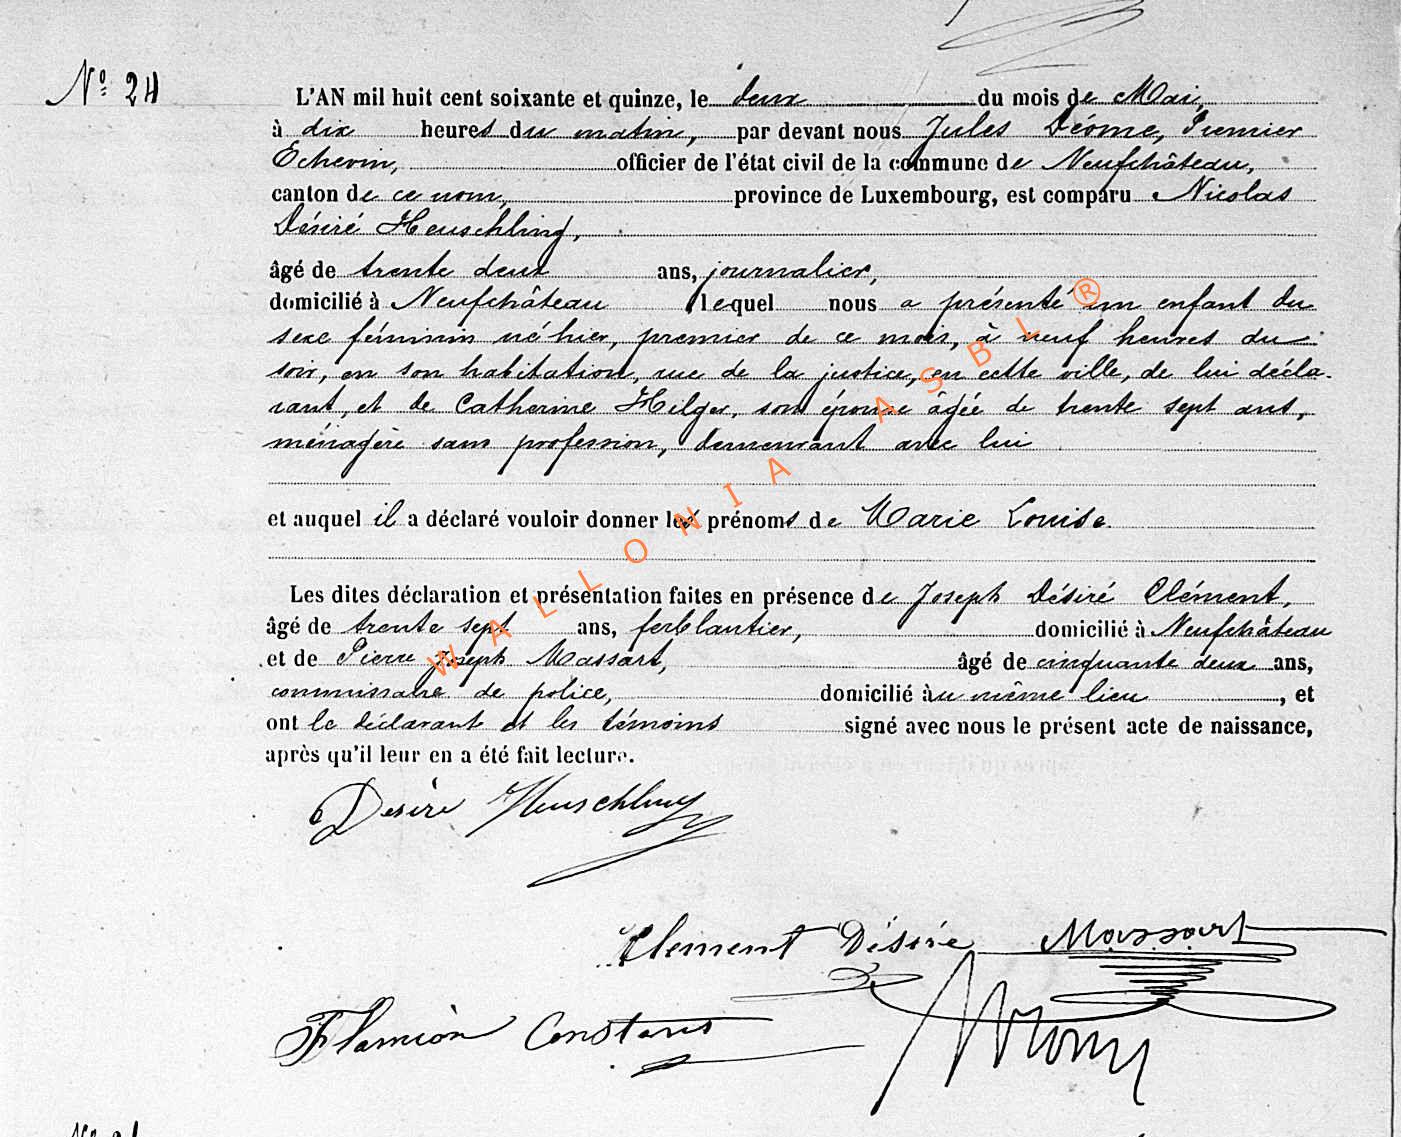 N° 24
L'AN mil huit cent soixante et quinze, le deux du mois de Mai,
à dix heures du matin, par devant nous Jules Déome, Premier
Echevin, officier de l'état civil de la commune de Neufchâteau,
canton de ce nom, province de Luxembourg, est comparu Nicolas
Désiré Heuschling,
âgé de trente deux ans, journalier,
domicilié à Neufchâteau lequel nous a présenté un enfant du
sexe féminin né hier, premier de ce mois, à neuf heures du
soir, en son habitation, rue de la justice, en cette ville, de lui décla-
rant, et de Catherine Hilger, son épouse âgée de trente sept ans,
ménagère sans profession, demeurant avec lui
et auquel il a déclaré vouloir donner les prénoms de Marie Louise.
Les dites déclaration et présentation faites en présence de Joseph Désiré Clément,
âgé de trente sept ans, ferblantier, domicilié à Neufchâteau
et de Pierre Joseph Massart, âgé de cinquante deux ans,
commissaire de police, domicilié au même lieu, et
ont le déclarant et les témoins signé avec nous le présent acte de naissance,
après qu'il leur en a été fait lecture.
Désiré Heuschling
Clement Désiré Massart
Flamion Constans
WALLONIA ASBL ®